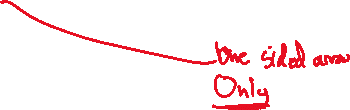 One sided arrow
Only